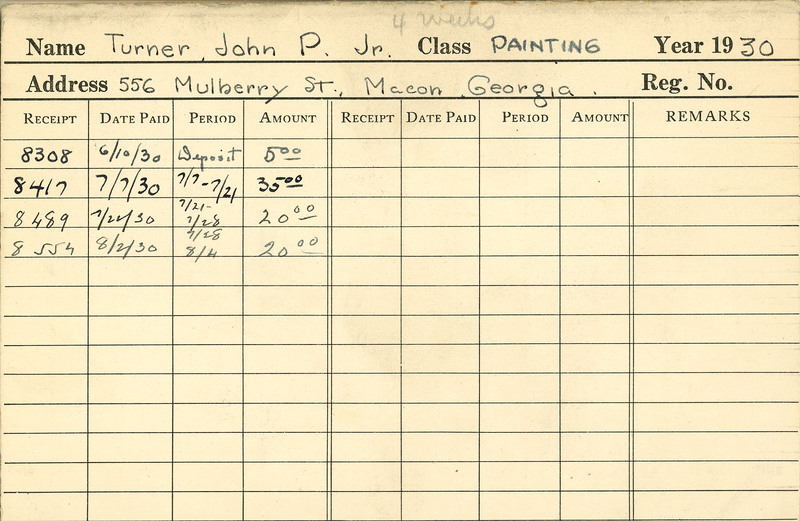 4 weeks
Name Turner, John P. Jr. Class PAINTING Year 1930
Address 556 Mulberry St., Macon Georgia. Reg. No.
RECEIPT DATE PAID PERIOD AMOUNT RECEIPT DATE PAID PERIOD AMOUNT REMARKS
8308 6/10/30 Deposit 5.00
8417 7/7/30 7/7-7/21 35.00
8489 7/22/30 7/21-7/28 20.00
8554 8/2/30 7/28 8/4 20.00